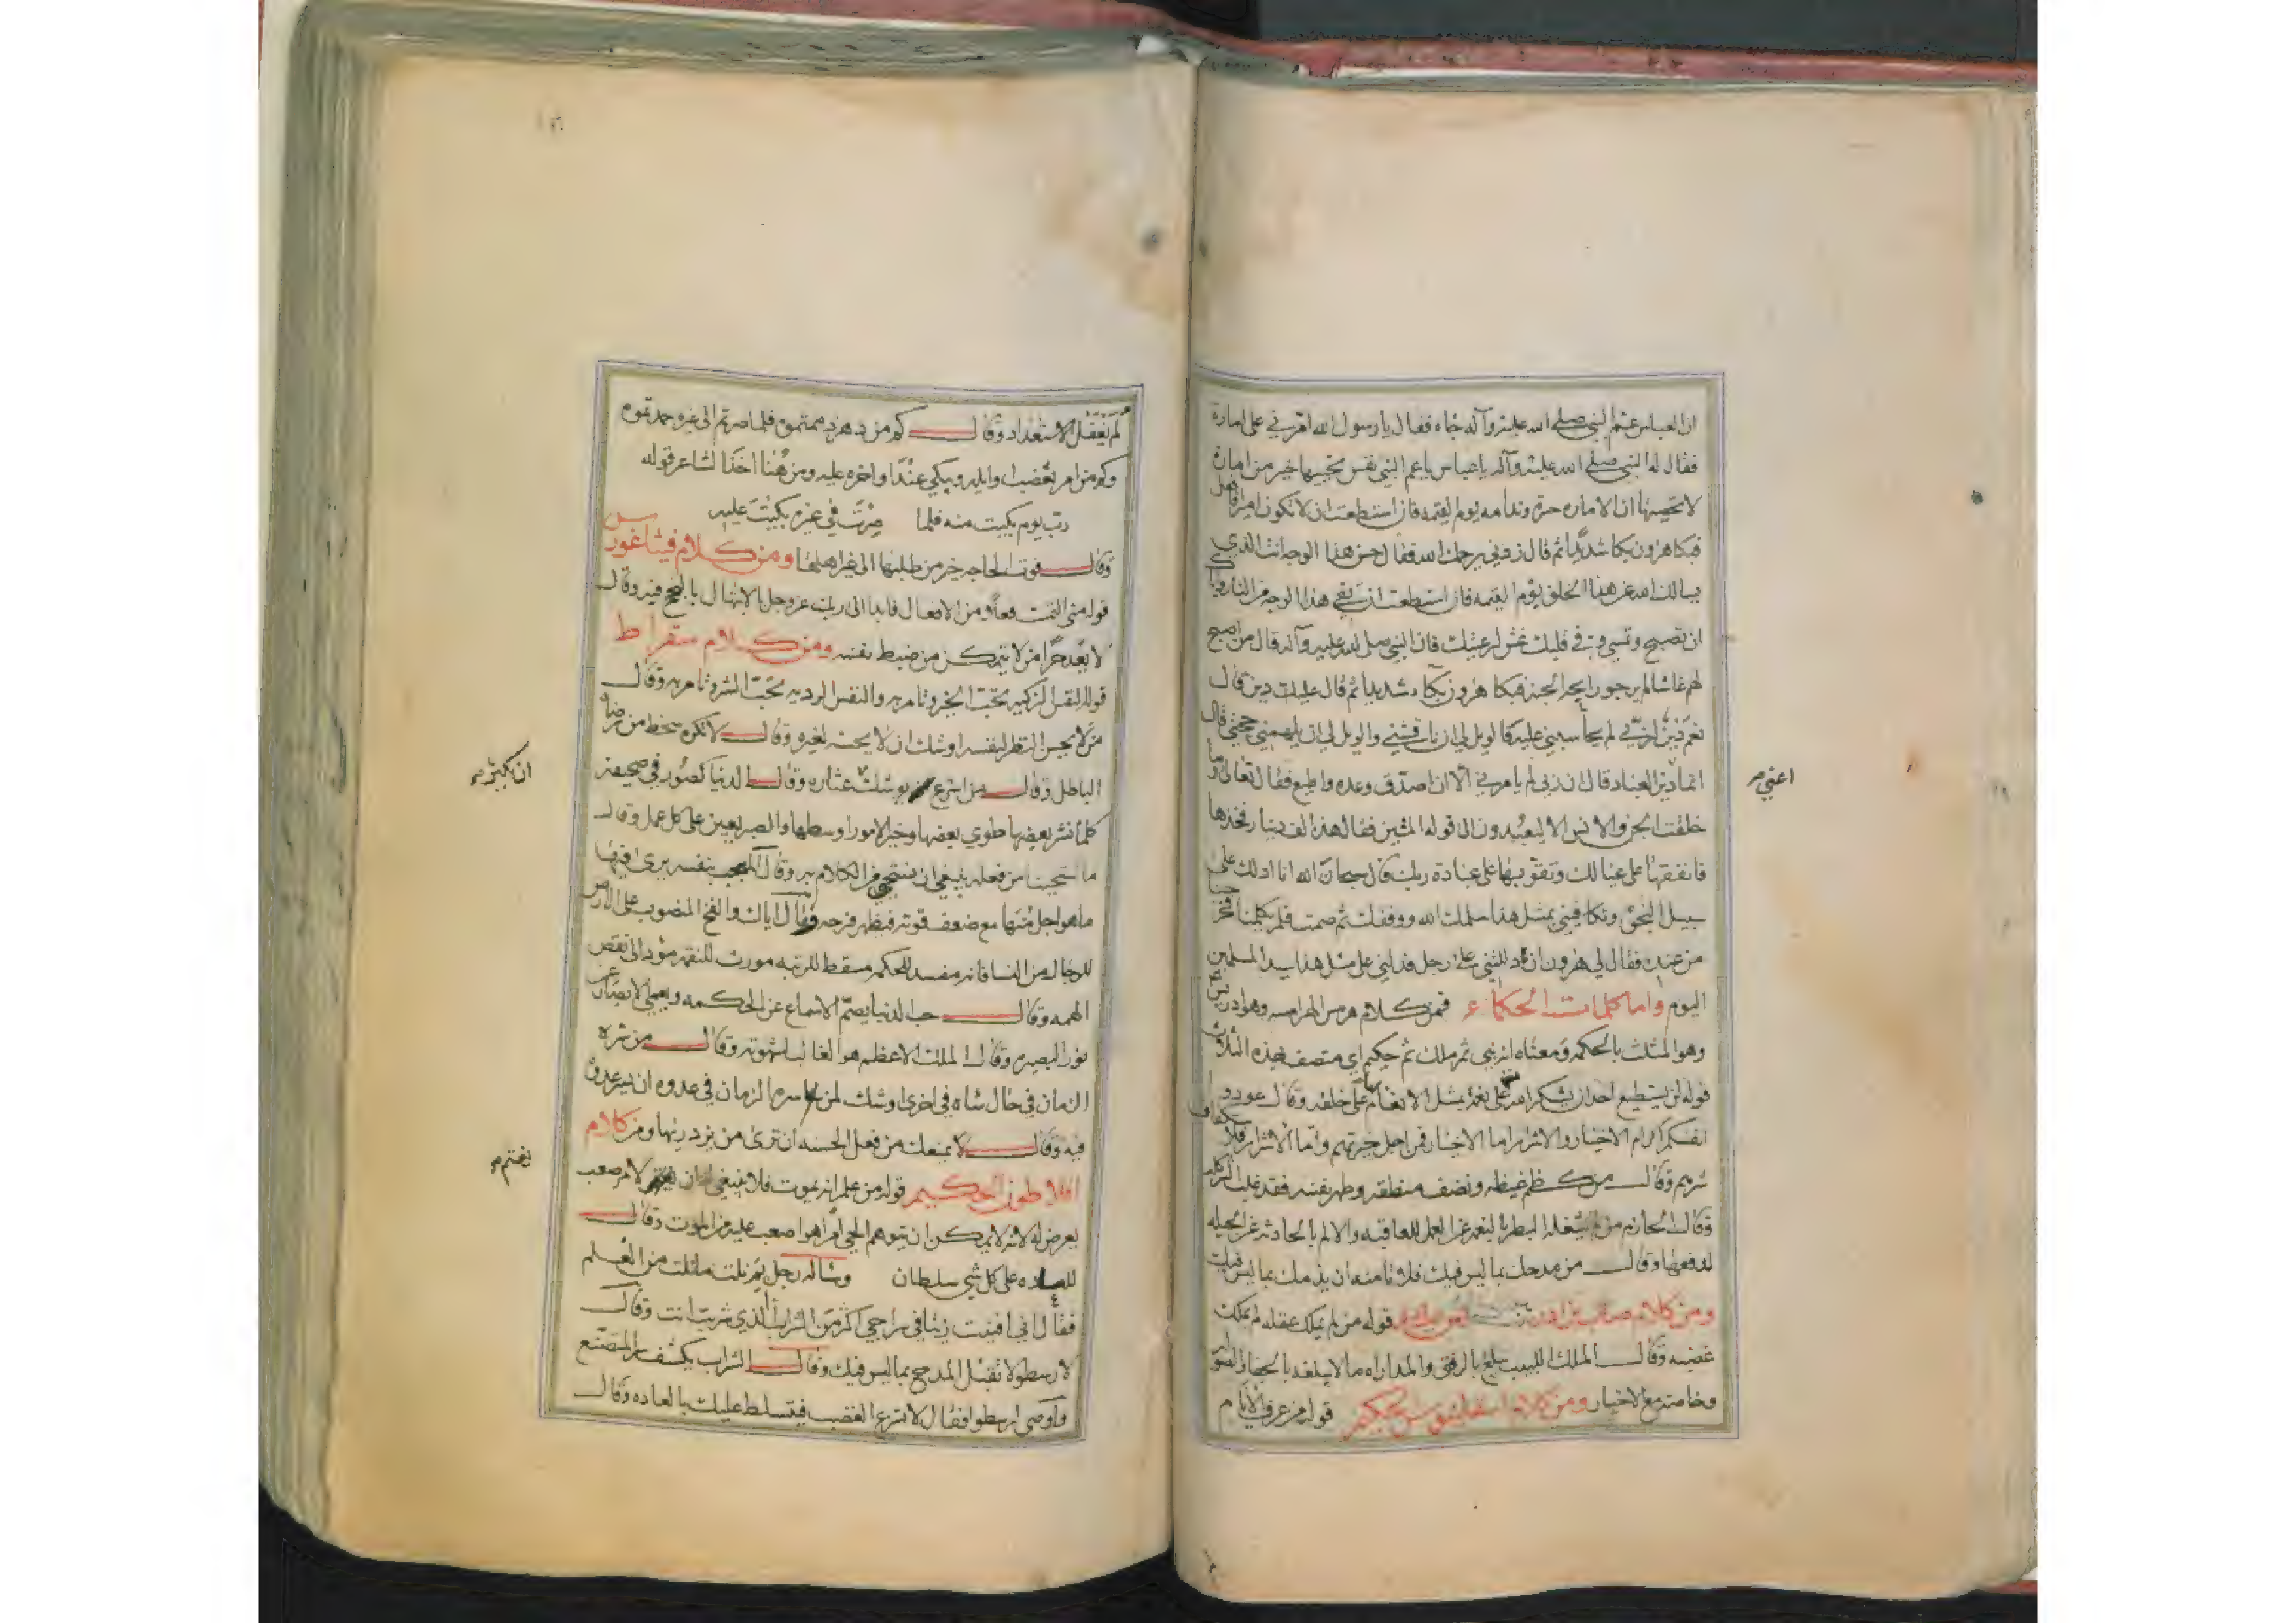 ان العباس عم النبي صلى الله عليه وآله جاه فقال يا رسول الله امرني على امارة
فقال له النبي صلى الله عليه وآله يا عباس يا عم النبي نفس تحييها خير من امارة
لا تحصيها ان الاماره حسرة وندامه يوم القيمه فان استطعت ان لا تكون اميرا فافعل
فبكا هرون بكا شديدا ثم قال زدني يرحمك الله فقال حسن هذا الوجه انت الذي
يسالك الله عن هذا الخلق يوم القيمه فان استطعت ان تقي هذا الوجه من النار
ان تصبح وتمسي وفي قلبك غش لرعيتك فان النبي صلى الله عليه وآله قال من اصبح
لهم غاشا لم يرح رايحة الجنة فبكا هرون بكاء شديدا ثم قال عليك دين قال
نعم دين لربي لم يحاسبني عليه فالويل لي ان ناقشني والويل لي ان لم يلهمني حجتي قال
انما دين العباد قال ان ربي لم يامرني الا ان اصدق وعده واطيع فقال تعالى وما
خلقت الجن والانس الا ليعبدون الى قوله المتين فقال هذا الف دينار فخذها
فانفقها على عيالك وتقو بها على عبادة ربك قال سبحان الله انا ادلك على
سبيل النجى وتكافيني بمثل هذا سلمك الله ووفقك ثم صمت فلم يكلمنا فخرجنا
من عنده فقال لي هرون اذا دللتني على رجل فدلني على مثل هذا سيد المسلمين
اليوم واما كلمات الحكماء فمن كلام هرمس الهرامسه وهو ادريس
وهو المثلث بالحكمه ومعناه انه نبي ثم ملك ثم حكيم اي متصف بهذه الثلاث
قوله لن يستطيع احد ان يشكر الله على نعمه بمثل الانعام على خلقه وقال عودوا
انفسكم اكرام الاخيار والاشرار اما الاخيار فمن اجل خيرتهم واما الاشرار فلاستكفاف
شرهم وقال من كظم غيظه ونصف منطقه وطهر نفسه فقد غلب الشر كله
وقال الحازم من لم يشغله البطر بالنعمه عن العمل للعاقبه والالم بالحادثه عن الحيله
لدفعها وقال من مدحك بما ليس فيك فلا تامنه ان يذمك بما ليس فيك
ومن كلام صاب بن ادريس قوله من لم يملك عقله لم يملك
غضبه وقال الملك اللبيب يبلغ بالرفق والمداراه ما لا يبلغه بالجفا والصول
وخاصة مع الاخيار ومن كلام الحكيم قوله من عرف الايام
اعني
لم يغفل الاستعداد وقال كم من دهر ذممتموه فلما صرتم الى غيره حمدتموه
وكم من امر بغضت اوايله ويبكي عند اواخره عليه ومن هنا اخذ الشاعر قوله
رب يوم بكيت منه فلما صرت في غيره بكيت عليه
وقال فوت الحاجه خير من طلبها الى غير اهلها ومن كلام فيثاغورس
قوله متى التمست فعلا من الافعال فابدا الى ربك عز وجل بالابتهال بالنجح فيه وقال
لا يعد حرا من لا يتمكن من ضبط نفسه ومن كلام سقراط
قوله النفس الزكيه تحب الخير وتامر به والنفس الرديه تحب الشر وتامر به وقال
من لا يحسن النظر لنفسه اوشك ان لا يحسنه لغيره وقال لا تكره سخط من رضاه
الباطل وقال من اسرع يوشك عثاره وقال الدنيا كصور في صحيفه
كلما نشر بعضها طوي بعضها وخير الامور اوسطها والصبر يعين على كل عمل وقال
ما استحييت من فعله ينبغي ان تستحيي من الكلام به وقال المعجب بنفسه يرى فيها
ما هو اجل منها مع ضعف قوته فيظهر فرحه وقال اياك والفخ المنصوب على الارض
للرجال من النسا فانه مفسد للحكم مسقط للرتبه مورث للنقم مؤد الى نقص
الهمه وقال حب الدنيا يصم الاسماع عن الحكمه ويعمي الابصار عن
نور البصيره وقال الملك الاعظم هو الغالب لشهوته وقال من سره
الزمان في حال ساه في اخرى اوشك لمن سره الزمان في عدوه ان يسر عدوه
فيه وقال لا يمنعك من فعل الحسنه ان ترى من يزدريها ومن كلام
افلاطون الحكيم قوله من علم انه يموت فلا ينبغي ان لامر صعب
يعرض له لانه لا يمكن ان يتوهم الحي امرا هو اصعب عليه من الموت وقال
للعاده على كل شي سلطان وساله رجل بم نلت ما نلت من العلم
فقال اني افنيت زيتا في سراجي اكثر من الشراب الذي شربت انت وقال
لارسطو لا تقبل المدح بما ليس فيك وقال الشراب يكشف سر المتصنع
واوصى ارسطوا فقال لا تسرع الغضب فيتسلط عليك بالعاده وقال
ان يكثر
يغتم